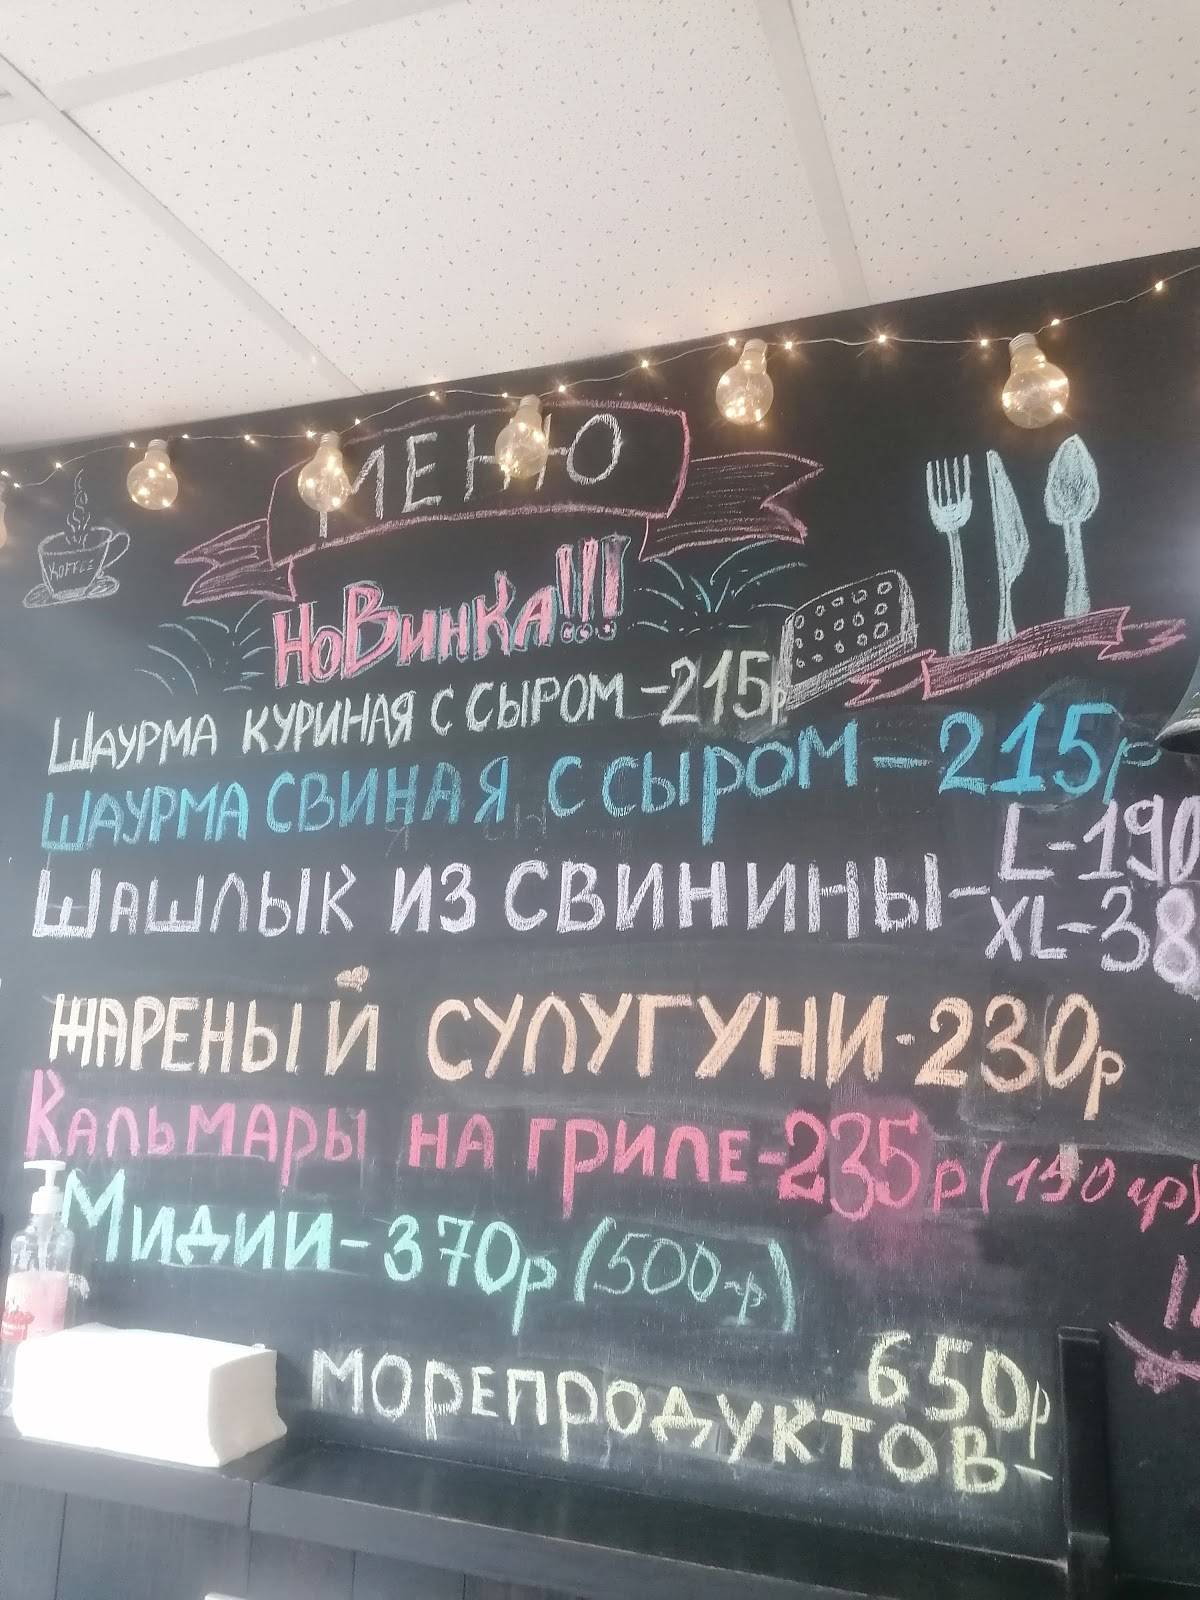 МЕНЮ
KOFFEE
НОВИНКА!!!
ШАУРМА КУРИНАЯ С СЫРОМ - 215р
ШАУРМА СВИНАЯ С СЫРОМ - 215р
L-190
ШАШЛЫК ИЗ СВИНИНЫ -
XL-38
ЖАРЕНЫЙ СУЛУГУНИ - 230р
КАЛЬМАРЫ НА ГРИЛЕ - 235р (150 гр)
МИДИИ - 370р (500гр)
650р
МОРЕПРОДУКТОВ -